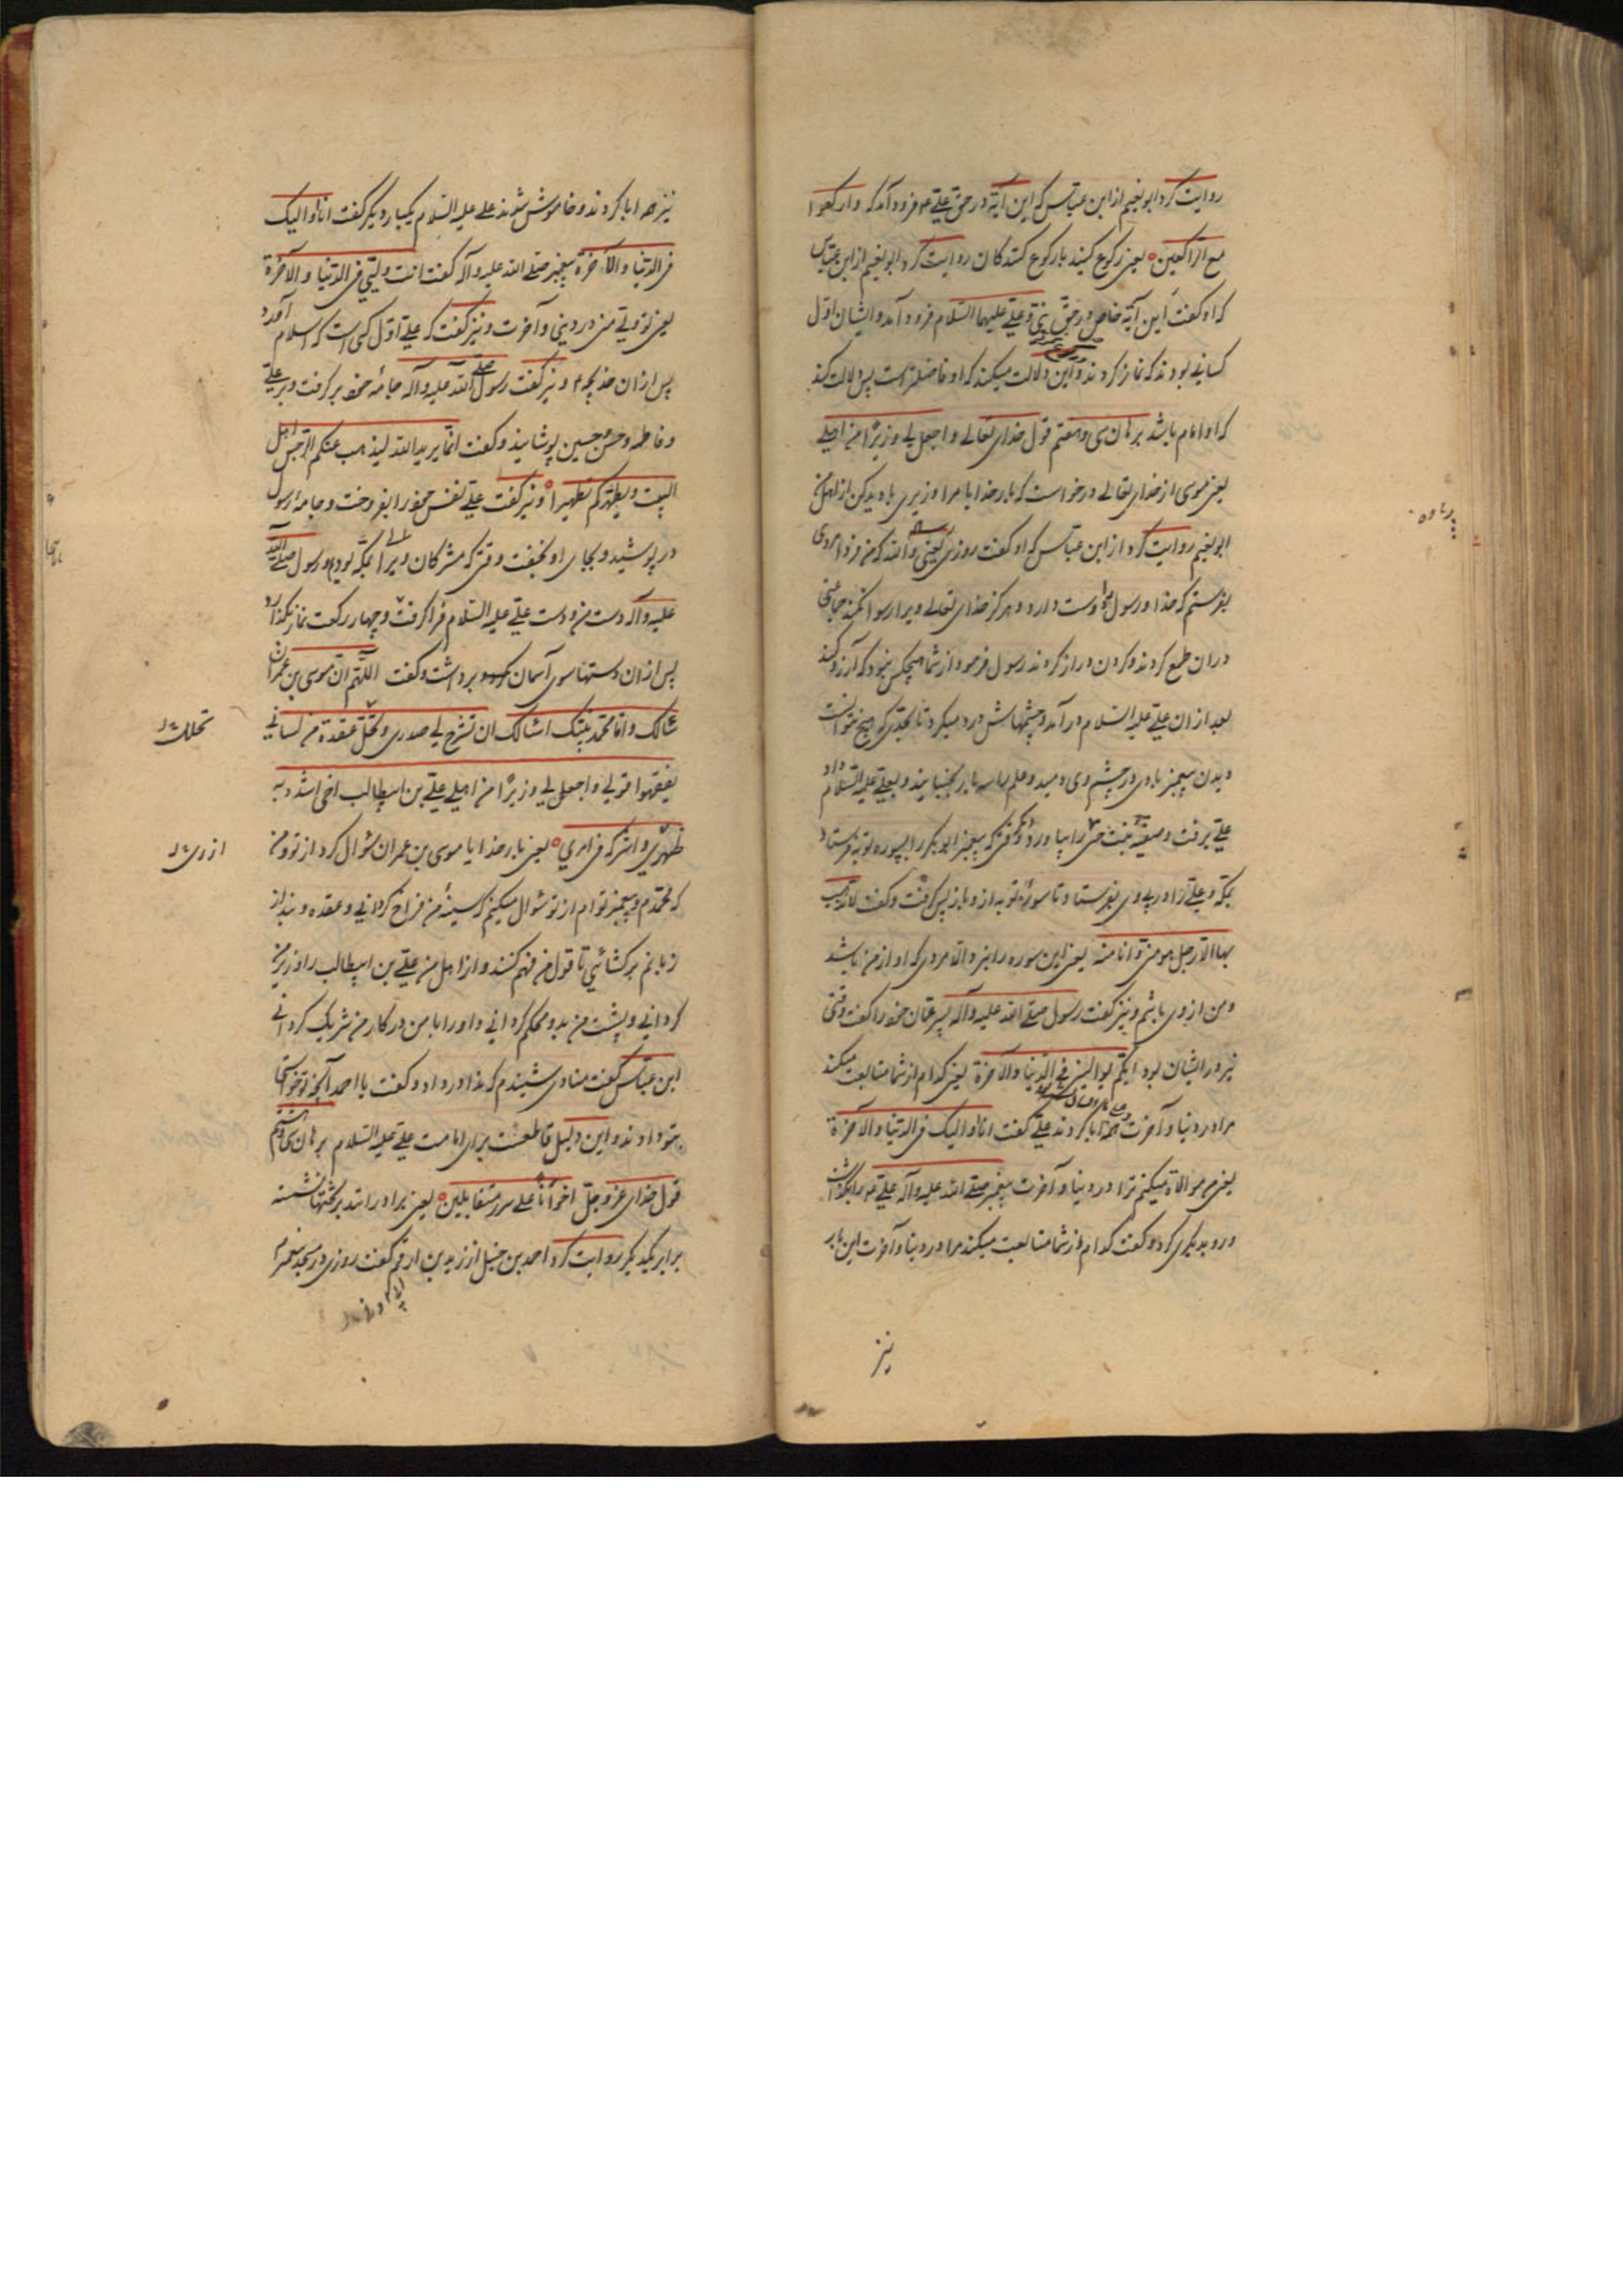 روایت کرد ابو نعیم از ابن عباس که این آیة در حق علی ع فرود آمد که وارکعوا
مع الراکعین یعنی رکوع کنید با رکوع کنندکان روایت کرد ابو نعیم از ابن عباس
که او کفت این آیة خاص در حق نبی و علی علیهما السلام فرود آمد و ایشان اول
کسانی بودند که نماز کردند و این دلالت میکند که او فاضلتر است پس دلالت کند
که او امام باشد برهان سی و هفتم قول خدای تعالی واجعل لی وزیرا من اهلی
یعنی موسی از خدای تعالی درخواست که بار خدایا مرا وزیری بادید کن از اهل من
ابو نعیم روایت کرد از ابن عباس که او کفت روزی والله که من فردا مردی
بفرستم که خدا و رسول دوست دارد و هرکز خدای تعالی ویرا رسوا نکند جماعتی
در ان طمع کردند و کردن دراز کردند رسول فرمود از شما هیچکس نبود که آرزو کند
بعد از ان علی علیه السلام در آمد و چشمهاش درد میکرد تا بحدی که هیچ نتوانست
دیدن پیغمبر باد در چشم وی دمید و علم سه بار بجنبانید و بعلی علیه السلام داد
علی برفت و صفیه بنت حی را بیاورد و وقتی که پیغمبر ابو بکر را بسوره توبه فرستاد
بمکه و علی را در پی وی بفرستاد تا سوره توبه از و باز پس کرفت و کفت لا یذهب
بها الا رجل هو منی وانا منه یعنی این سوره را نبرد الا مردی که او از من باشد
و من از وی باشم و نیز کفت رسول صلی الله علیه وآله پسر عمان خود را کفت وقتی
نیز در ایشان بود ایکم یوالینی فی الدنیا والآخرة یعنی کدام از شما متابعت میکند
مرا در دنیا و آخرت همه ابا کردند علی کفت انا اوالیک فی الدنیا والاخرة
یعنی من موالاة میکنم ترا در دنیا و آخرت پیغمبر صلی الله علیه وآله علی ع را بکذاشت
و رو بدیکری کرد و کفت کدام از شما متابعت میکند مرا در دنیا و آخرت این بار
نیز
نیز همه ابا کردند و خاموش شدند علی علیه السلام یکبار دیکر کفت انا اوالیک
فی الدنیا والآخرة پیغمبر صلی الله علیه وآله کفت انت ولیی فی الدنیا والاخرة
یعنی تو ولی منی در دنیی و آخرت و نیز کفت که علی اول کسی است که اسلام آورد
پس از ان خدیجه ع و نیز کفت رسول صلی الله علیه وآله جامه خود بر کرفت و بر علی
و فاطمه و حسن و حسین پوشانید و کفت انما یرید الله لیذهب عنکم الرجس اهل
البیت ویطهرکم تطهیرا و نیز کفت علی نفس خود را بفروخت و جامه رسول
در پوشید و بجای او بخفت وقتی که مشرکان ویرا بمکه بودیم و رسول صلی الله
علیه وآله دست من و دست علی علیه السلام فرا کرفت و چهار رکعت نماز بکذارد
پس از ان دستها سوی آسمان برداشت و کفت اللهم ان موسی بن عمران
سالک وانا محمد نبیک اسالک ان تشرح لی صدری وتحل عقدة من لسانی
تحلل
یفقهوا قولی واجعل لی وزیرا من اهلی علی بن ابیطالب اخی اشدد به
ظهری واشرکه فی امری یعنی بار خدایا موسی بن عمران سؤال کرد از تو و من
ازری
که محمدم و پیغمبر توام از تو سؤال میکنم که سینهٔ من فراخ کردانی و عقده و بند از
زبانم بر کشائی تا قول من فهم کنند و از اهل من علی بن ابیطالب را وزیر من
کردانی و پشت من بدو محکم کردانی و او را با من در کار من شریک کردانی
ابن عباس کفت منادی شنیدم که ندا در داد و کفت یا احمد آنچه تو خواستی
بتو دادند و این دلیل قاطعست برای امامت علی علیه السلام برهان سی و هشتم
قول خدای عز وجل اخوانا علی سرر متقابلین یعنی برادرانند بر تختها نشسته
برابر یکدیکر روایت کرد احمد بن حنبل از زید بن ارقم کفت روزی در مسجد پیغمبر